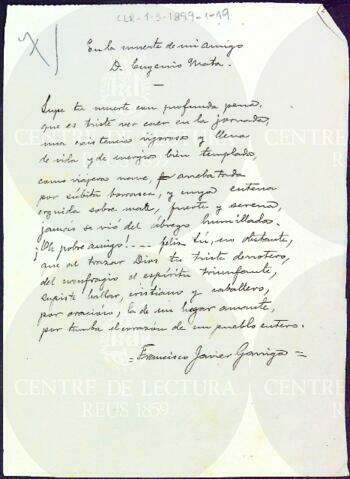 CLR-1-3-1899-1-19
En la muerte de mi amigo
D. Eugenio Mata.
Supe tu muerte con profunda pena,
que es triste ver caer en la jornada,
una existencia vigorosa y llena
de vida y de energías bien templada,
como viajera nave, arrebatada
por súbita borrasca, y cuya entena
erguida sobre mate, fuerte y serena,
jamás se vió del ábrego humillada.
¡Oh pobre amigo!.... feliz tú, no obstante,
que al trazar Dios tu triste derrotero,
del naufragio el espíritu triunfante,
supiste hallar, cristiano y caballero,
por oración, la de un hogar amante,
por tumba el corazón de un pueblo entero.
=Francisco Javier Garriga=
CENTRE DE LECTURA
REUS 1859